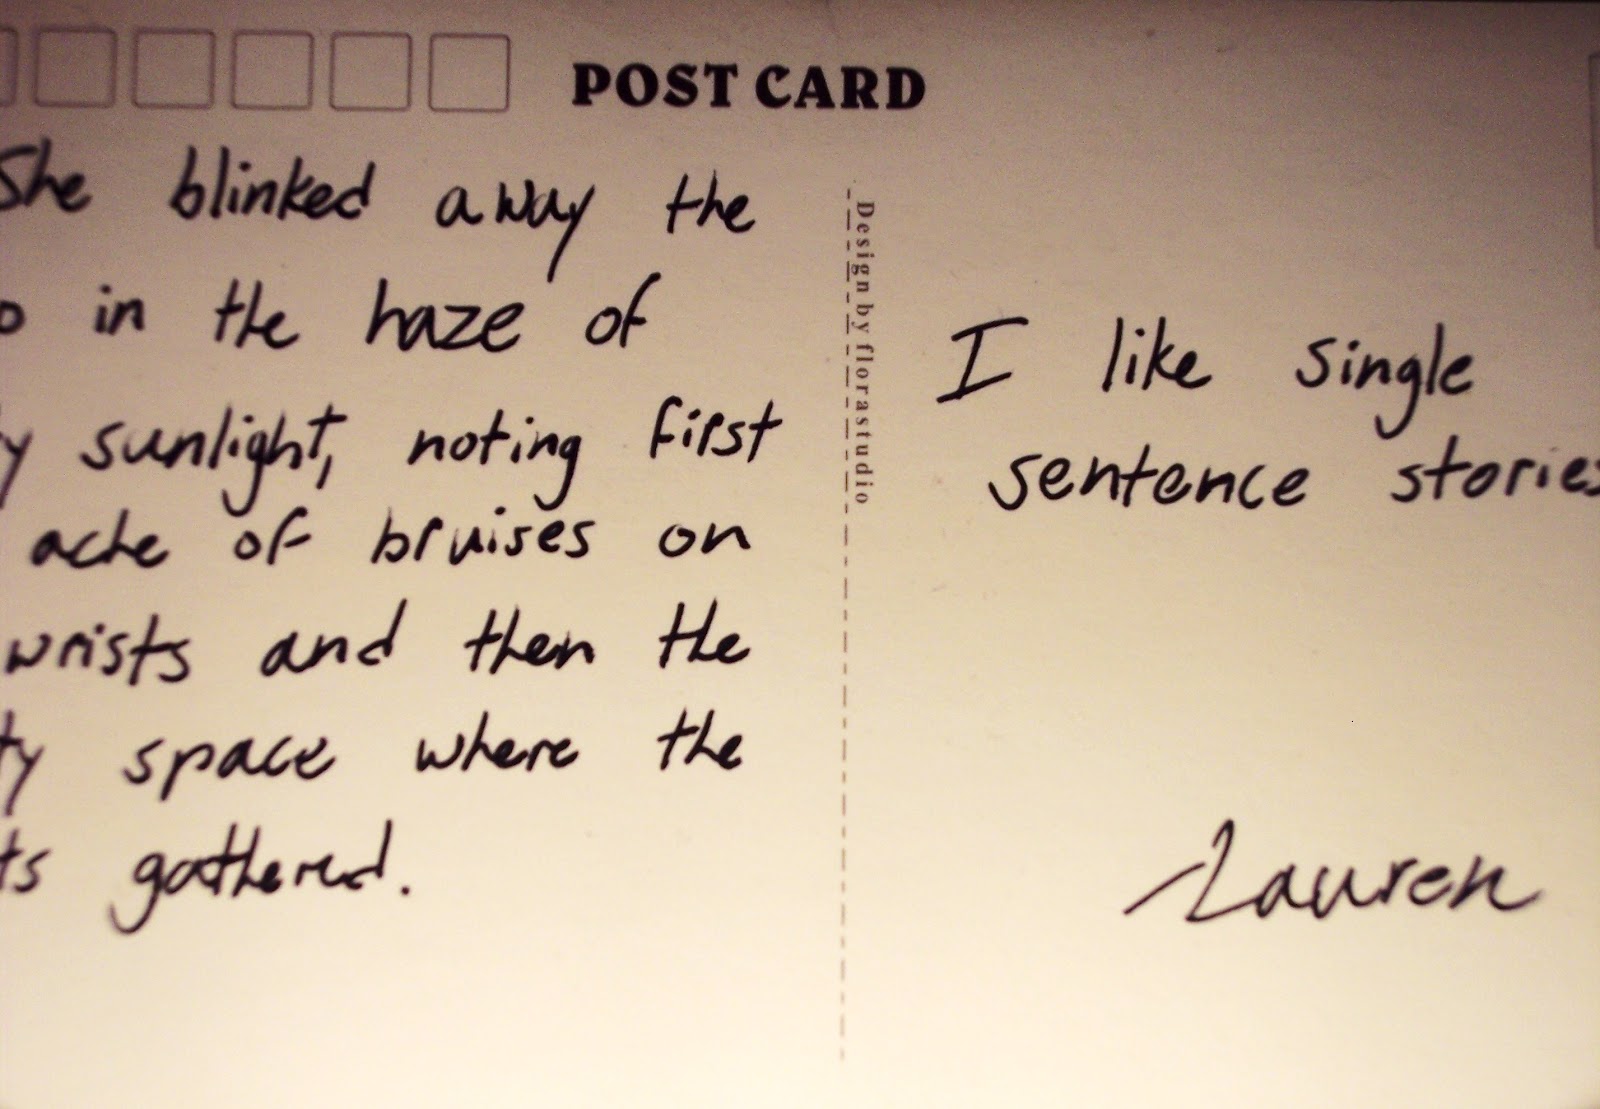 POST CARD
She blinked away the
in the haze of
sunlight, noting first
ache of bruises on
wrists and then the
space where the
gathered.
Design by florastudio
I like single
sentence stories
Lauren